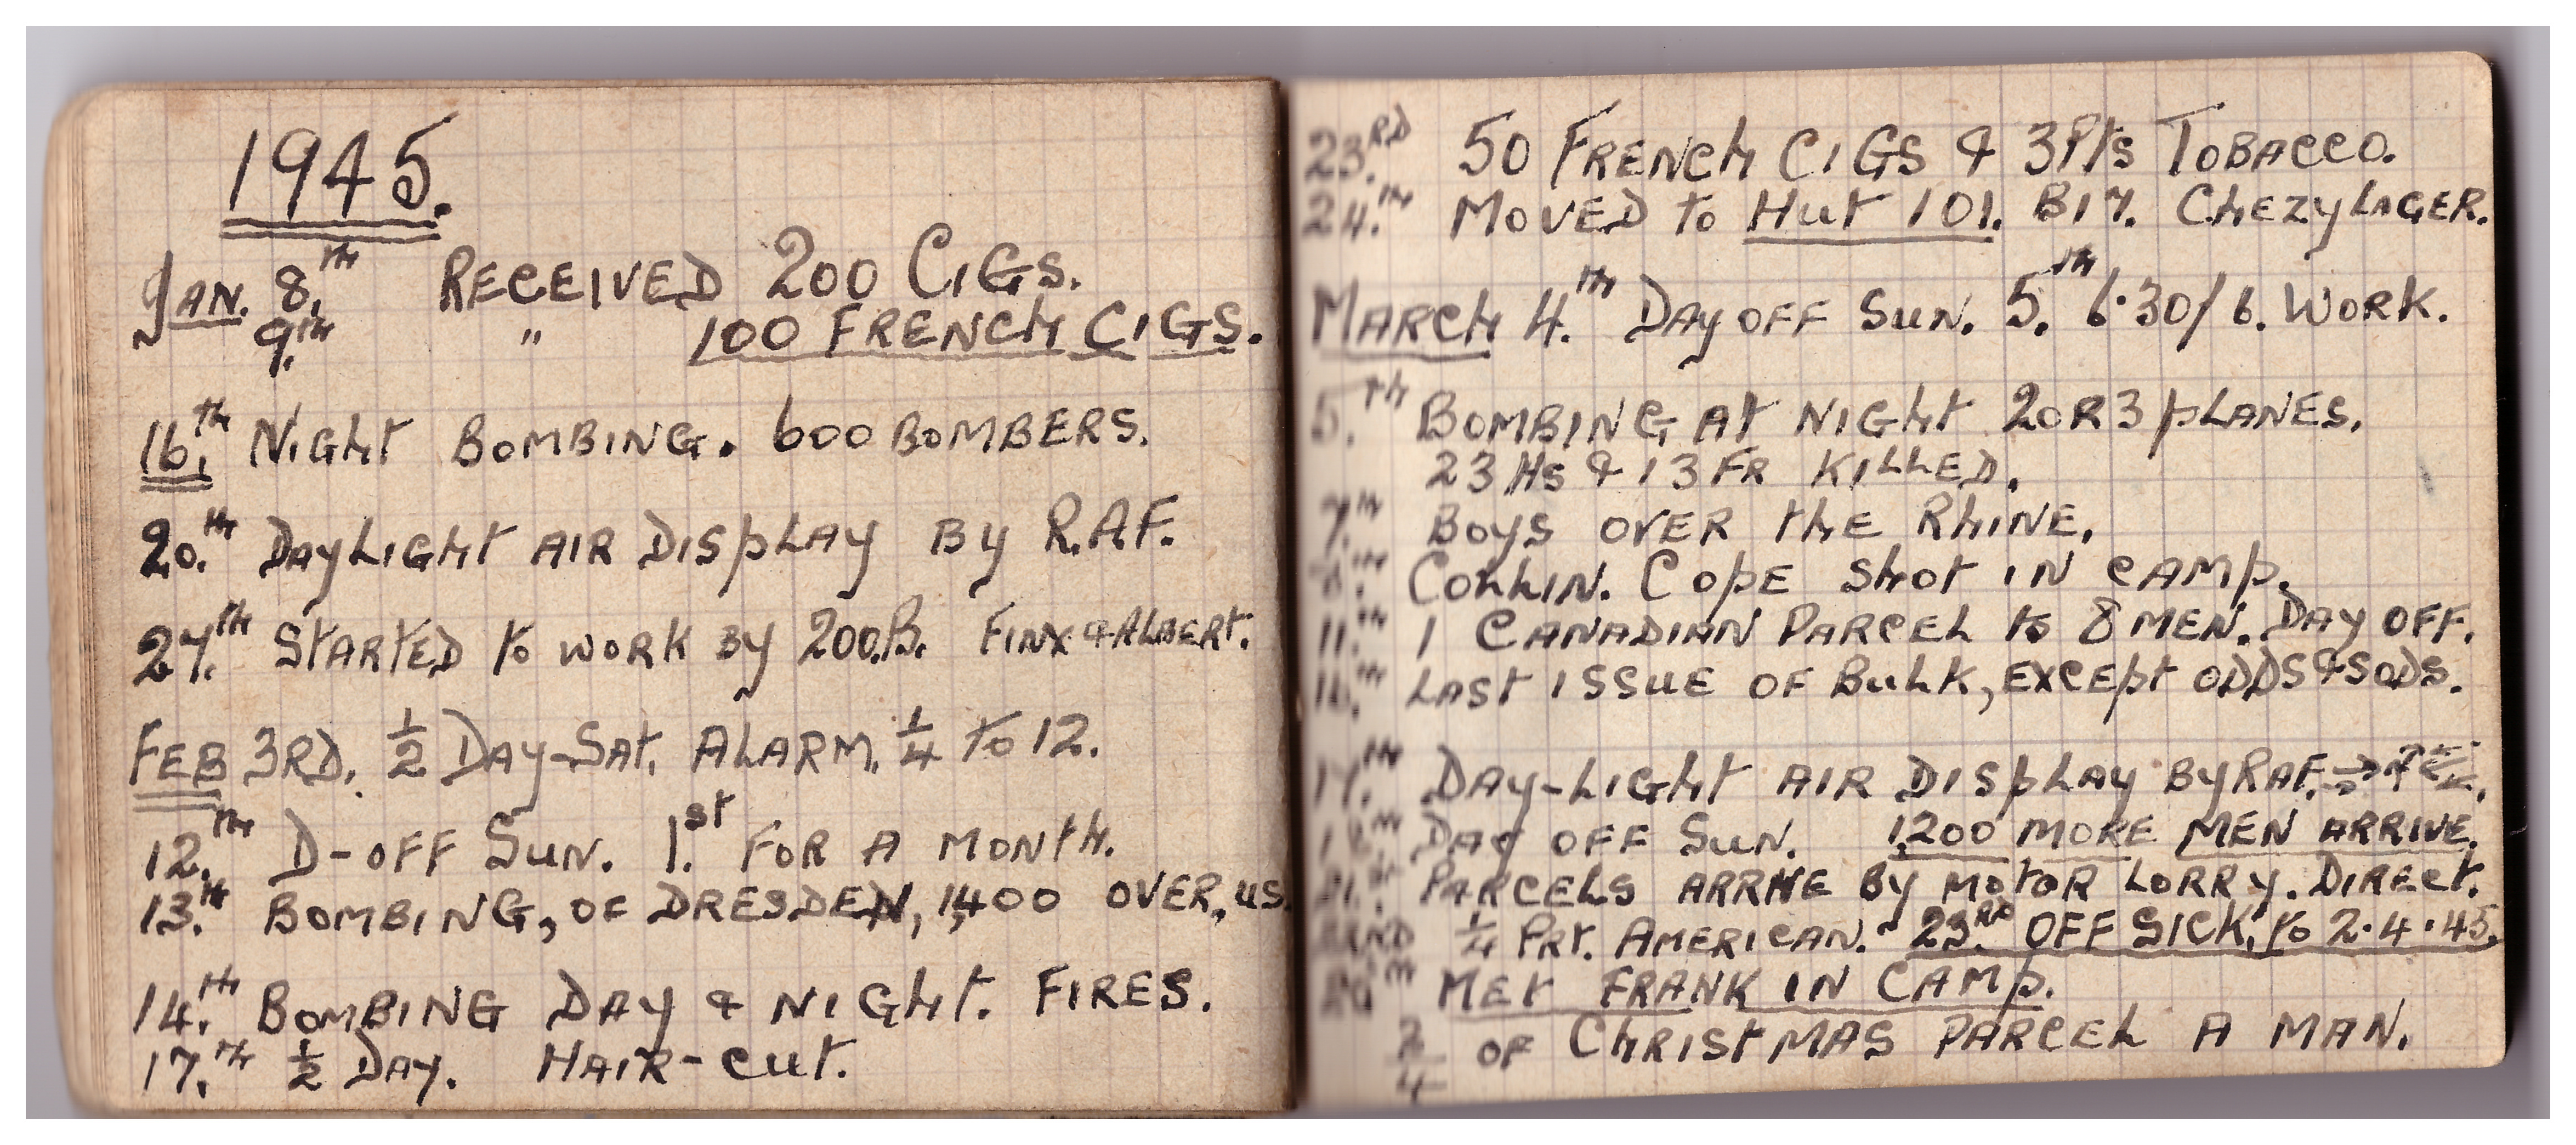 1945.
JAN. 8th RECEIVED 200 CIGS.
9th " 100 FRENCH CIGS.
16th NIGHT BOMBING. 600 BOMBERS.
20th DAYLIGHT AIR DISPLAY BY R.A.F.
27th STARTED TO WORK BY 200.B. FINX & ALBERT.
FEB 3RD. ½ DAY-SAT. ALARM. ¼ TO 12.
12th D-OFF SUN. 1st FOR A MONTH.
13th BOMBING, OF DRESDEN, 1,400 OVER, US.
14th BOMBING DAY & NIGHT. FIRES.
17th ½ DAY. HAIR-CUT.
23RD 50 FRENCH CIGS & 3 Pkts TOBACCO.
24th MOVED TO HUT 101. B17. CHEZY LAGER.
MARCH 4th DAY OFF SUN. 5th 6.30/6. WORK.
5th BOMBING AT NIGHT 2 OR 3 PLANES.
23 & 13 FR KILLED.
7th BOYS OVER THE RHINE.
COLLIN. COPE SHOT IN CAMP.
11th 1 CANADIAN PARCEL TO 8 MEN. DAY OFF.
16th LAST ISSUE OF BULK, EXCEPT ODDS & SODS.
17th DAY-LIGHT AIR DISPLAY BY RAF.
18th DAY OFF SUN. 1,200 MORE MEN ARRIVE.
21st PARCELS ARRIVE BY MOTOR LORRY. DIRECT.
22ND ¼ PRT. AMERICAN. 23RD OFF SICK, TO 2.4.45.
MET FRANK IN CAMP.
OF CHRISTMAS PARCEL A MAN.